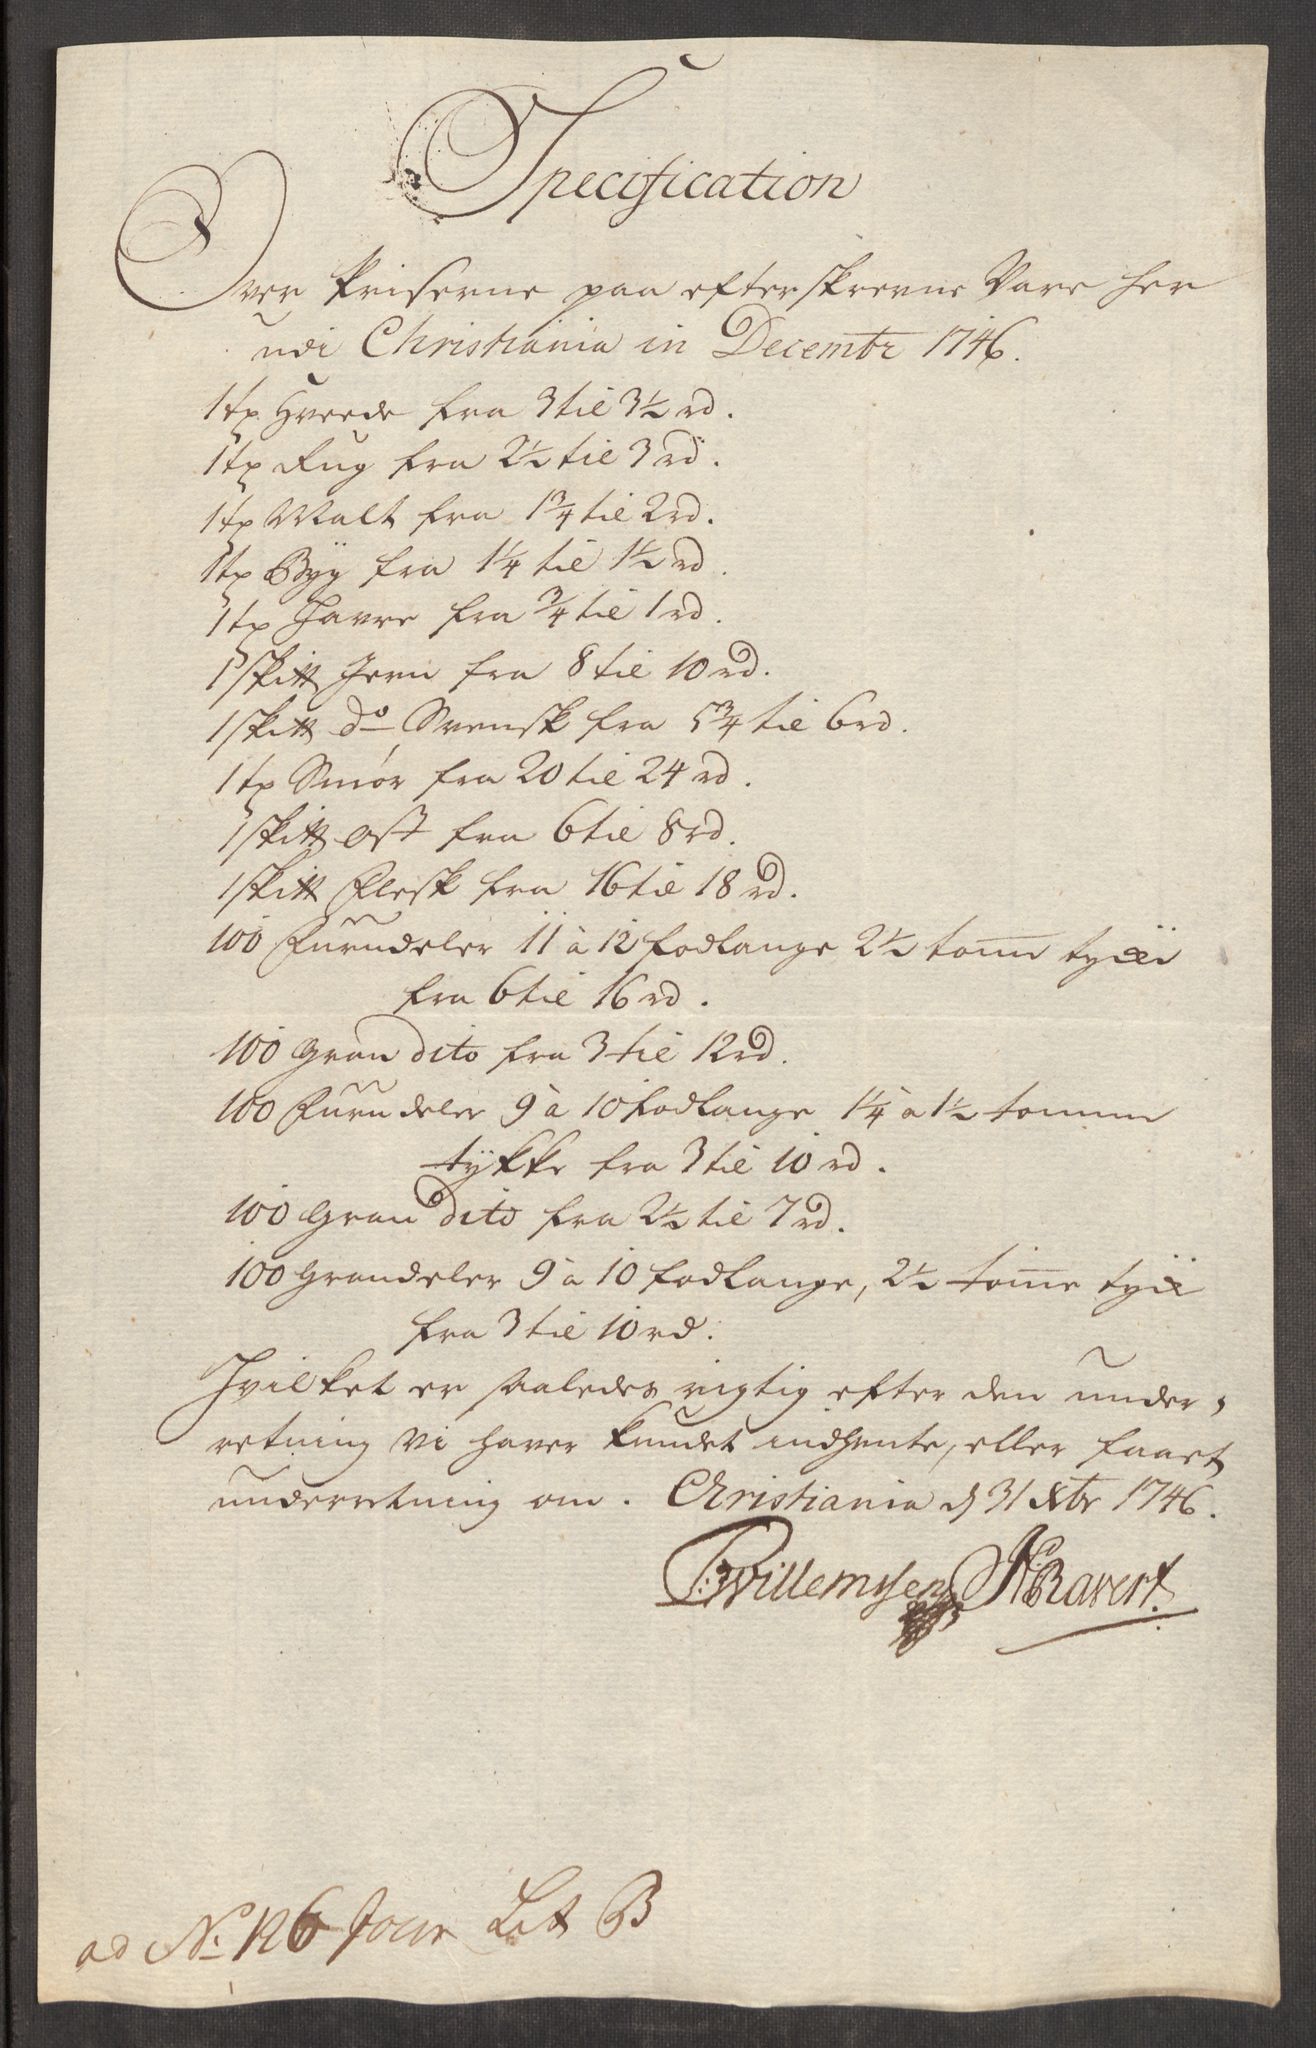 Specification
Over Priserne paa efterskrevne Vare her
udi Christiania in Decembr 1746.
1 tø Hvede fra 3 til 3½ rd.
1 tø Rug fra 2½ til 3 rd.
1 tø Malt fra 1¾ til 2 rd.
1 tø Byg fra 1¼ til 1½ rd.
1 tø Havre fra ¾ til 1 rd.
1 skitt Jern fra 8 til 10 rd.
1 skitt do Svensk fra 5¾ til 6 rd.
1 tø Smør fra 20 til 24 rd.
1 skitt Ost fra 6 til 8 rd.
1 skitt Flesk fra 16 til 18 rd.
100 Furudeler 11 à 12 fodlange 2½ tomme tycke
fra 6 til 16 rd.
100 Gran dito fra 3 til 12 rd.
100 Furu deler 9 à 10 fodlange 1¼ à 1½ tomme
tykke fra 3 til 10 rd.
100 Gran dito fra 2½ til 7 rd.
100 Grandeler 9 à 10 fodlange, 2½ tomme tyck
fra 3 til 10 rd.
Hvilket er saaledes rigtig efter den under-
retning vi haver kundet indhente, eller faaet
underretning om. Christiania d 31 Xbr 1746.
Willemsen Ravert.
ad No: 126 Jour Lit B